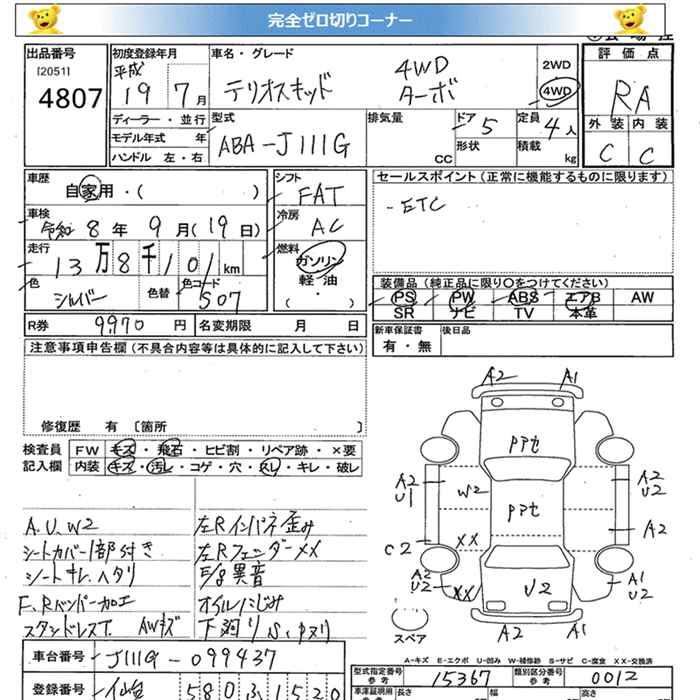 完全ゼロ切りコーナー
出品番号
[2051]
4807
初度登録年月
平成
19 7月
車名・グレード
テリオスキッド
4WD
ターボ
2WD
4WD
評価点
RA
外装 内装
C C
ディーラー・並行
モデル年式 年
ハンドル 左・右
型式
ABA-J111G
排気量
CC
ドア 5
形状
定員 4人
積載 kg
車歴
自家用・( )
車検
令和 8年 9月(19日)
走行
13万8千101km
色
シルバー
色替
色コード
S07
シフト
FAT
冷房
AC
燃料
ガソリン
軽・油
( ・ )
セールスポイント(正常に機能するものに限ります)
-ETC
装備品(純正品に限り○をつけてください)
PS PW ABS エアB AW
SR ナビ TV 本革
新車保証書
有・無
後日品
R券 9970円 名変期限 月 日
注意事項申告欄(不具合内容等は具体的に記入して下さい)
修復歴 有 〔箇所 〕
検査員
記入欄
FW キズ・飛石・ヒビ割・リペア跡・×要
内装 キズ・汚レ・コゲ・穴・スレ・キレ・破レ
A.U.W2
シートカバー1部付き
シートキレ、ヘタリ
F、Rバンパー加工
スタンドレスT. AWキズ
左Rインパネ歪み
左RフェンダーXX
E/g異音
オイルにじみ
下廻りS、中ヌリ
A2 A1
ppt
A2
U1
W2
ppt
A2
U2
A2
C2
XX
A2
U2
XX
U2
A1
U2
A2 A1
スペア
A-キズ E-エクボ U-凹み W-補修跡 S-サビ C-腐食 XX-交換済
車台番号
J111G-099437
登録番号
仙台 580ふ1520
型式指定番号
参考
15367
類別区分番号
参考
0012
車庫証明用
参考
長さ
幅
高さ